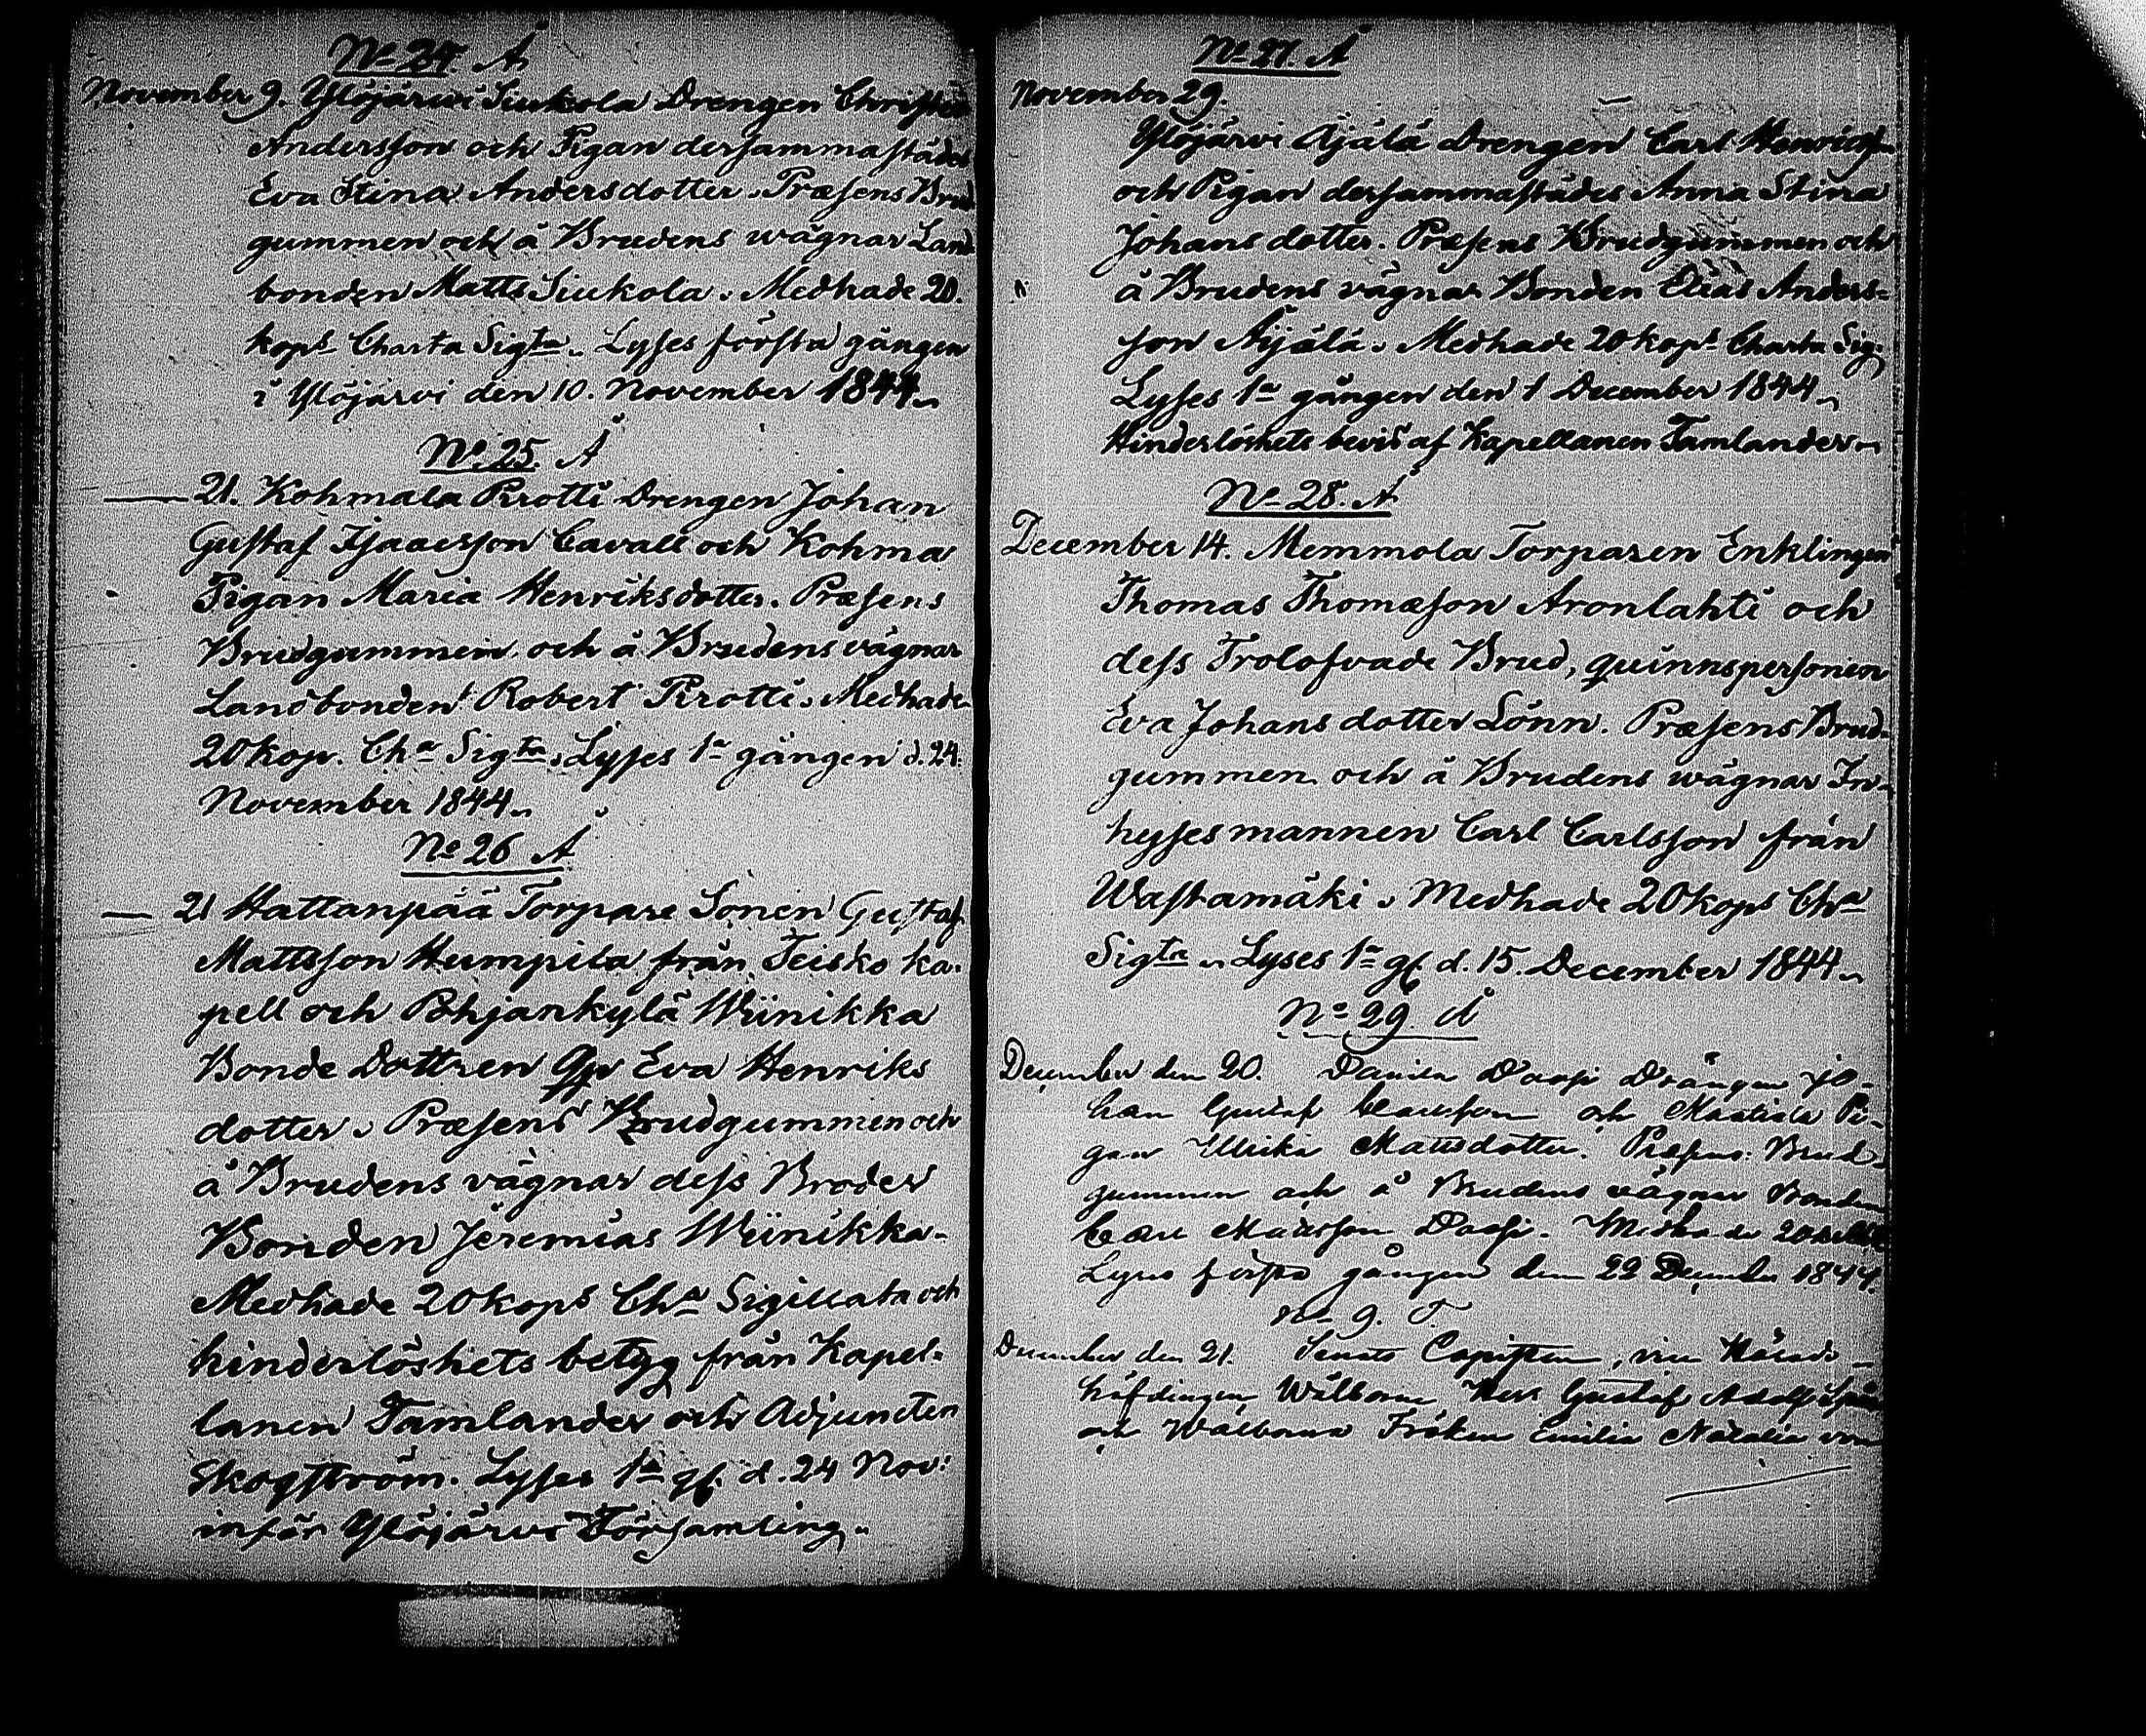 No 24. Å
November 9. Ylöjärvi Siukola Drengen Christian
Andersson och Pigan dersammastädes
Eva Stina Andersdotter. Præsens Brud
gummen och å Brudens wägnar Land
bonden Matts Siukola. Medhade 20.
kops Charta Sigta. Lyses första gången
i Ylöjärvi den 10. November 1844.
No 25. Å
21. Kohmala Pirotti Drengen Johan
Gustaf Isaacsson Cavall och Kohma
Pigan Maria Henriksdotter. Præsens
Brudgummen och å Brudens vägnar
Landbonden Robert Pirotti. Medhade
20 kop. Cha Sigta. Lyses 1a gången d. 24.
November 1844.
No 26 Å
21 Hattanpää Torpare Sonen Gustaf
Mattsson Humpila från Teisko ka-
pell och Pohjankylä Wiinikka
Bonde Dottren Eva Henriks
dotter. Præsens Brudgummen och
å Brudens vägnar dess Broder
Bonden Jeremias Wiinikka.
Medhade 20 kops Cha Sigillata och
hinderlöshets betyg från Kapel-
lanen Tamlander och Adjuncten
Skogström. Lyses 1a gg. d. 24 Nov:
inför Ylöjärvi Församling.
No 27. Å
November 29.
Ylöjärvi Äijälä Drengen Carl
och Pigan dersammastädes Anna Stina
Johansdotter. Præsens Brudgummen och
å Brudens vägnar Bonden Elias Anders-
son Äijälä. Medhade 20 kops Charta Sig:
Lyses 1a gången den 1 December 1844.
Hinderlöshets bevis af Kapellanen Tamlander.
No 28. Å
December 14. Memmola Torparen Enklingen
Thomas Thomæson Aronlahti och
dess Trolofvade Brud, quinnspersonen
Eva Johansdotter Lönn. Præsens Brud-
gummen och å Brudens wägnar In-
hysesmannen Carl Carlsson från
Wastamäki. Medhade 20 kops Cha
Sigta. Lyses 1a gg. d. 15. December 1844.
No 29. Å
December den 20. Daniel Drängen Jo-
han Gustaf och Pi-
gan Ulrika Mattsdotter. Præsens Brud-
gummen och å Brudens vägnar Bonden
Mattsson Medhade 20
Lyses första gången den 22 December 1844.
No 9. T.
December den 21. Senats Copisten, vice Härads-
höfdingen Wälborne Herr Gustaf Adolf
och Wälborna Fröken Emilia Natalia von